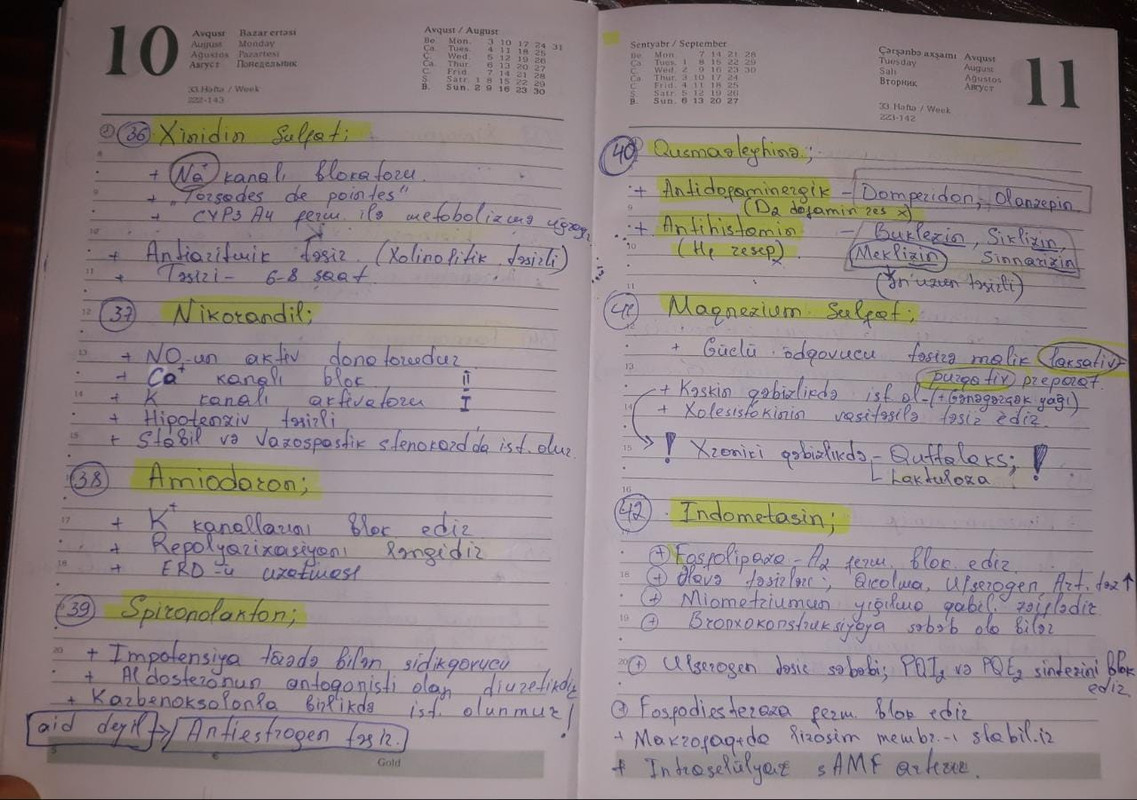 10
Avqust Bazar ertəsi
August Monday
Ağustos Pazartesi
Август Понедельник
33.Hafta / Week
222-143
Avqust / August
Be. Mon. 3 10 17 24 31
Ça. Tues. 4 11 18 25
Ç. Wed. 5 12 19 26
Ca. Thur. 6 13 20 27
C. Frid. 7 14 21 28
Ş. Satr. 1 8 15 22 29
B. Sun. 2 9 16 23 30
36 Xinidin Sulfat;
+ Na+ kanalı blokatoru.
+ "Torsades de pointes"
+ CYP3A4 ferm. ilə metobolizmə uğrayır
+ Antiaritmik təsir (Xolinolitik təsirli)
+ Təsiri - 6-8 saat
37 Nikorandil;
+ NO-un aktiv donatorudur
+ Ca+ kanalı blok II
+ K kanalı aktivatoru I
+ Hipotenziv təsirli
+ Stabil və Vazospastik stenokard.da ist. olur.
38 Amiodaron;
+ K+ kanallarını blok edir
+ Repolyarizasiyanı ləngidir
+ ERD-ü uzatması
39 Spironolakton;
+ Impotensiya törədə bilən sidikqovucu
+ Aldosteronun antogonisti olan diuretikdir
+ Karbenoksolonla birlikdə ist. olunmur!
aid deyil → Antiestrogen təsir.
Gold
Sentyabr / September
Be. Mon. 7 14 21 28
Ça. Tues. 1 8 15 22 29
Ç. Wed. 2 9 16 23 30
Ca. Thur. 3 10 17 24
C. Frid. 4 11 18 25
Ş. Satr. 5 12 19 26
B. Sun. 6 13 20 27
Çərşənbə axşamı Avqust
Tuesday August
Salı Ağustos
Вторник Август
33. Hafta / Week
223-142
11
40 Qusmaəleyhinə;
+ Antidopaminergik - Domperidon, Olanzepin
(D2 dofamin res x)
+ Antihistamin - Buklezin, Siklizin,
(H1 resep)x Meklizin, Sinnarizin
(ən uzun təsirli)
41 Maqnezium Sulfat;
+ Güclü ödqovucu təsirə malik laksativ
purqativ preparat.
+ Kəskin qəbizlikdə ist. ol-(+Gənəgərçək yağı)
+ Xolesistokinin vasitəsilə təsir edir.
! Xroniki qəbizlikdə - Quttalaks; !
Laktuloza
42 Indometasin;
+ Fosfolipaza-A2 ferm. blok edir.
+ Əlavə təsirləri; Qıcolma, Ulserogen, Art. təz ↑
+ Miometriumun yığılma qabil. zəiflədir
+ Bronxokonstruksiyaya səbəb ola bilər
+ Ulserogen təsir səbəbi; PQI2 və PQE2 sintezini blok
edir.
+ Fosfodiesteraza ferm. blok edir
+ Makrofaqda lizosim membr.-ı stabil.ir
+ Intraselülyar sAMF artırır.